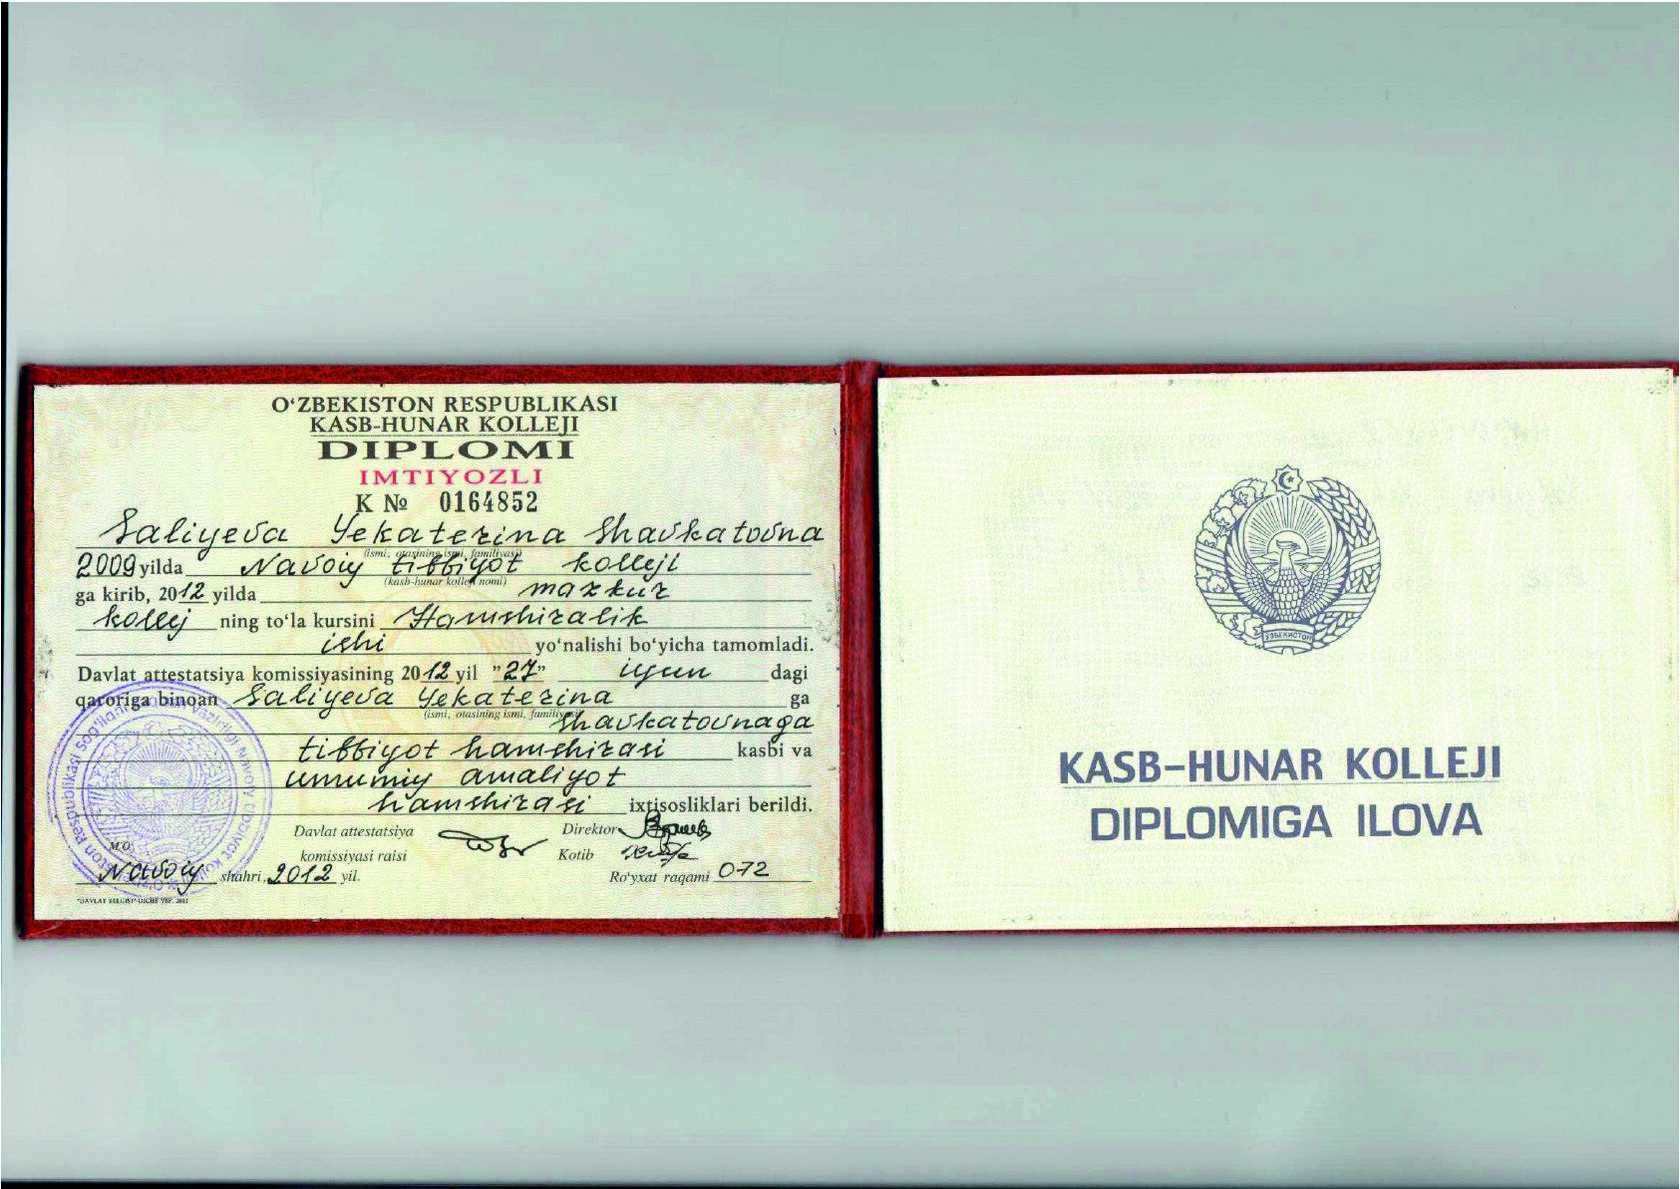 O‘ZBEKISTON RESPUBLIKASI
KASB-HUNAR KOLLEJI
DIPLOMI
IMTIYOZLI
K № 0164852
Saliyeva Yekaterina Shavkatovna
(ismi, otasining ismi, familiyasi)
2009 yilda Navoiy tibbiyot kolleji
(kasb-hunar kolleji nomi)
ga kirib, 2012 yilda mazkur
kollej ning to‘la kursini Hamshiralik
ishi yo‘nalishi bo‘yicha tamomladi.
Davlat attestatsiya komissiyasining 2012 yil "27" iyun dagi
qaroriga binoan Saliyeva Yekaterina ga
(ismi, otasining ismi, familiyasi)
Shavkatovnaga
tibbiyot hamshirasi kasbi va
umumiy amaliyot
hamshirasi ixtisosliklari berildi.
Davlat attestatsiya
komissiyasi raisi
Direktor
Kotib
M.O.
Navoiy shahri, 2012 yil.
Ro‘yxat raqami 072
ЎЗБЕКИСТОН
KASB-HUNAR KOLLEJI
DIPLOMIGA ILOVA